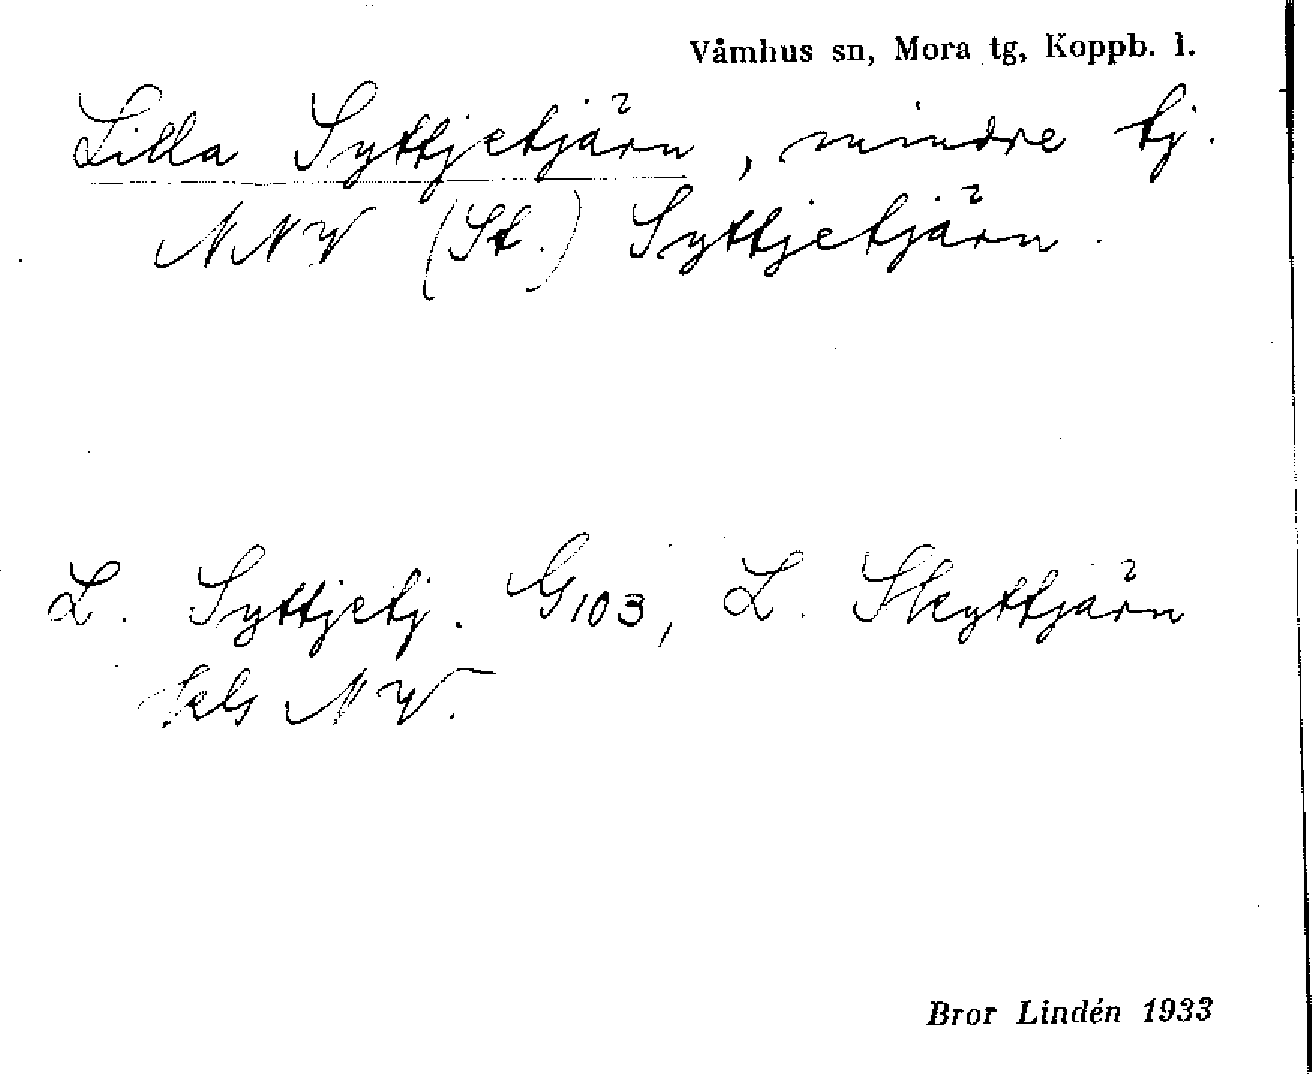 Våmhus sn, Mora tg, Koppb. l.
Lilla Syttjetjärn, mindre tj.
NNV (St.) Syttjetjärn.
L. Syttjetj. G103, L. Skyttjärn
NV.
Bror Lindén 1933